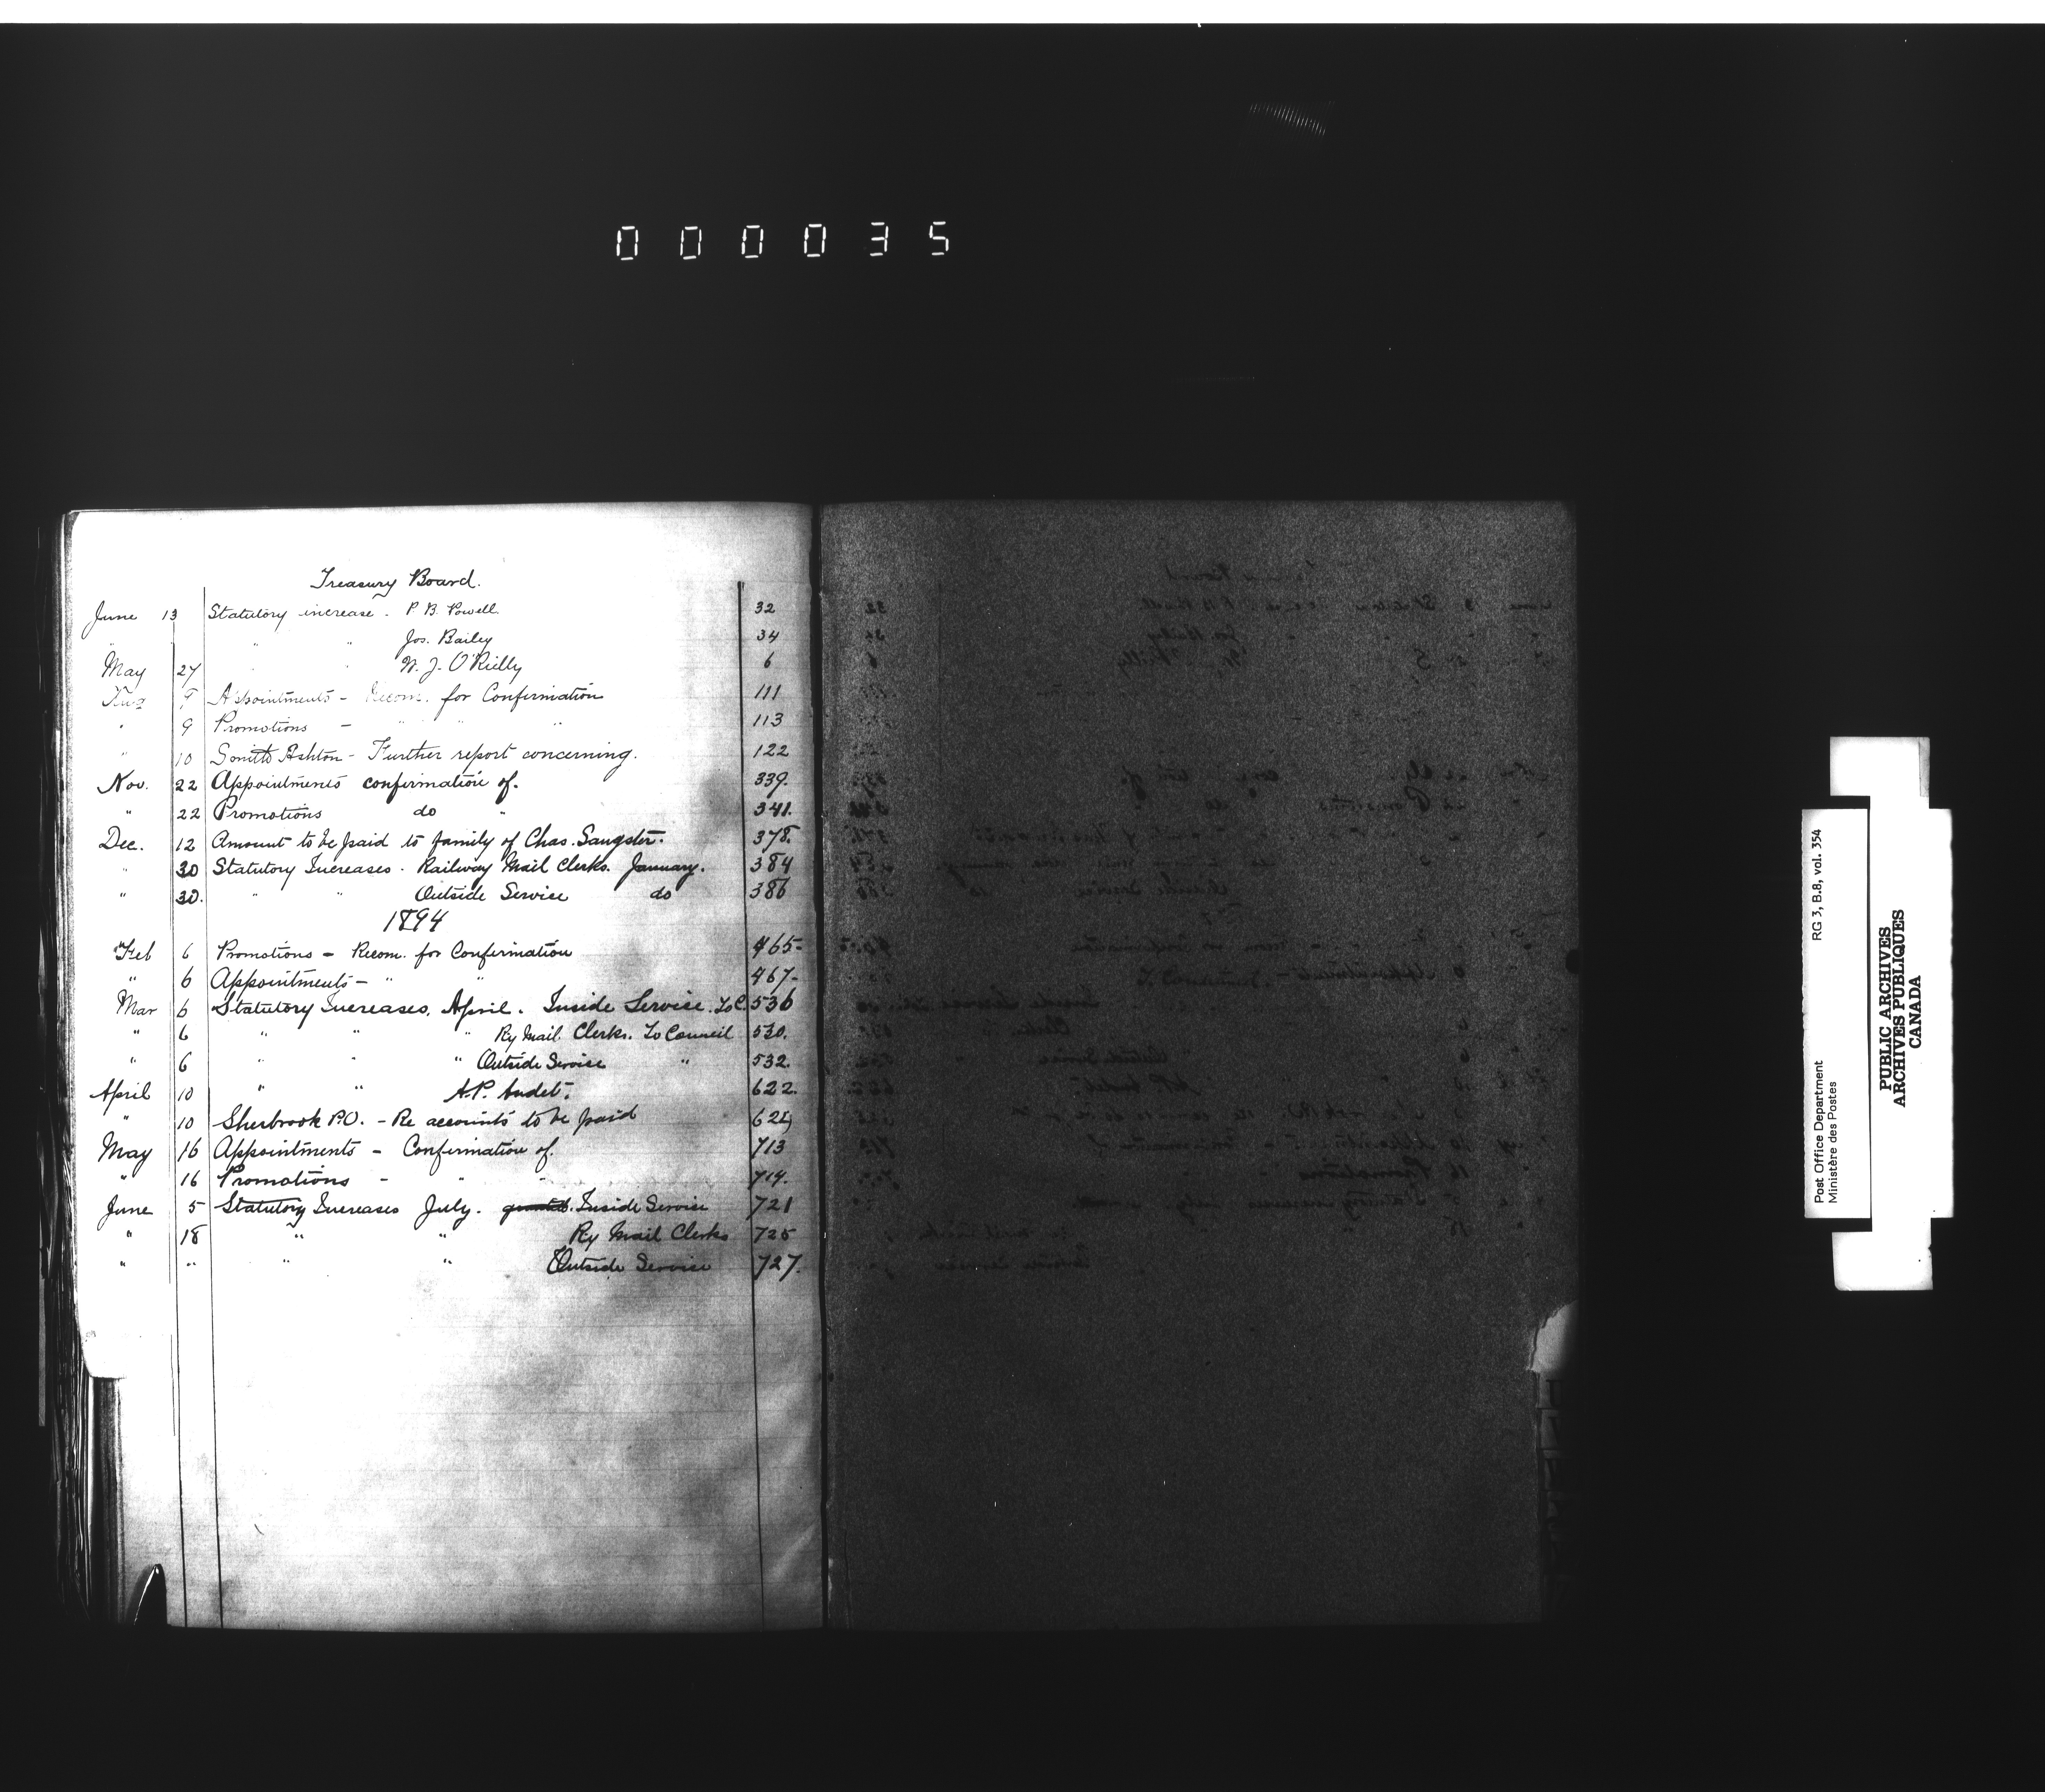 000035
Treasury Board.
June 13 Statutory increase - P. B. Powell. 32
" " Jos. Bailey 34
May 27 " " W. J. O'Reilly 6
9 Appointments - Recom. for Confirmation 111
" 9 Promotions - " " " 113
" 10 Smith Ashton - Further report concerning. 122
Nov. 22 Appointments confirmation of. 339.
" 22 Promotions do " 341.
Dec. 12 Amount to be paid to family of Chas. Sangster. 378.
" 30 Statutory Increases - Railway Mail Clerks. January. 384
" 30. " " Outside Service do 386
1894
Feb 6 Promotions - Recom. for Confirmation 465-
" 6 Appointments - " " 467-
Mar 6 Statutory Increases, April. Inside Service. To C. 536
" 6 " " " Ry Mail Clerks. To Council 530.
" 6 " " " Outside Service " 532.
April 10 " " A.P. Audet. 622.
" 10 Sherbrook P.O. - Re accounts to be paid
May 16 Appointments - Confirmation of. 713
" 16 Promotions - " " 714.
June 5 Statutory Increases July. granted. Inside Service 721
" 18 " " Ry Mail Clerks 725
" " " " Outside Service 727.
Post Office Department RG 3, B.8, vol. 354
Ministère des Postes
PUBLIC ARCHIVES
ARCHIVES PUBLIQUES
CANADA